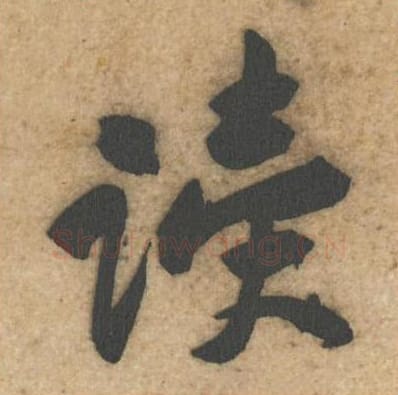 读
Shufawang.cn